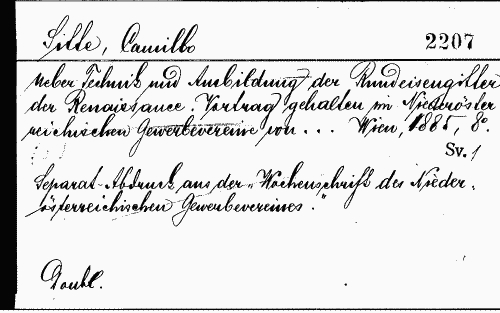 Sitte, Camillo 2207
Ueber Technik und Ausbildung der Rundeisengitter
der Renaissance. Vortrag gehalten im Niederöster
reichischen Gewerbevereine von ... Wien, 1885, 8º.
Sv. 1
Separat-Abdruck aus der "Wochenschrift des Nieder-
österreichischen Gewerbevereines."
Doubl.